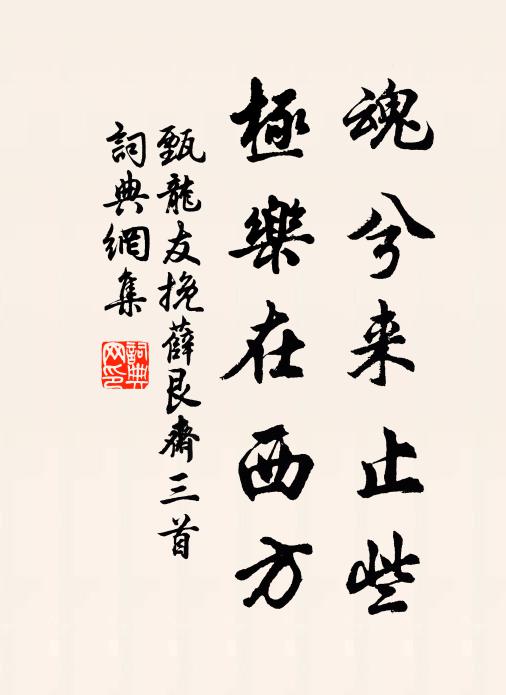 魂兮来止些
極樂在西方
甄龍友挽薛艮齋三首
詞典網集
詞典网印